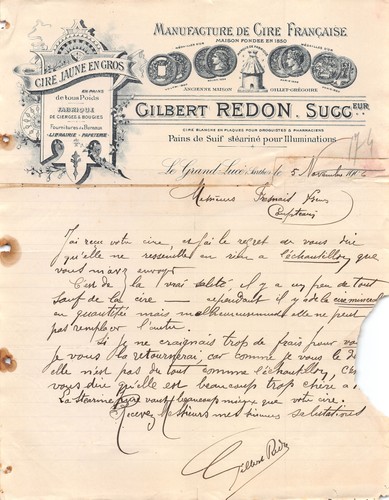 MANUFACTURE DE CIRE FRANÇAISE
MAISON FONDÉE EN 1850
CIRE JAUNE EN GROS
ANCIENNE MAISON GILLET-GRÉGOIRE
EN PAINS
de tous Poids
FABRIQUE
DE CIERGES & BOUGIES
Fournitures de Bureaux
LIBRAIRIE - PAPETERIE
GILBERT REDON, SUCCEUR
CIRE BLANCHE EN PLAQUES POUR DROGUISTES & PHARMACIENS
Pains de Suif stéariné pour Illuminations
Le Grand-Lucé (Sarthe) le 5 Novembre
Messieurs
J'ai reçu votre cire, et j'ai le regret de vous dire
qu'elle ne ressemble en rien à l'échantillon que
vous m'avez envoyé
C'est de la vrai saleté, il y a un peu de tout
sauf de la cire — cependant il y a de la cire minérale
en quantité mais malheureusement elle ne peut
pas remplacer l'autre.
Si je ne craignais trop de frais pour vous
je vous la retournerai, car comme je vous le
elle n'est pas du tout comme l'échantillon, c'est
vous dire qu'elle est beaucoup trop chère
La Stéarine pure vaut beaucoup mieux que votre cire.
Recevez Messieurs mes bonnes salutations
Gilbert Redon